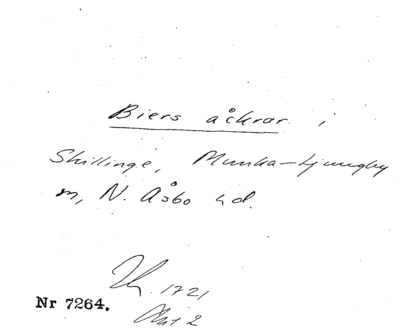 Biers åkrar i
Skillinge, Munka-Ljungby
m, N. Åsbo hd.
1721
Nr 7264.